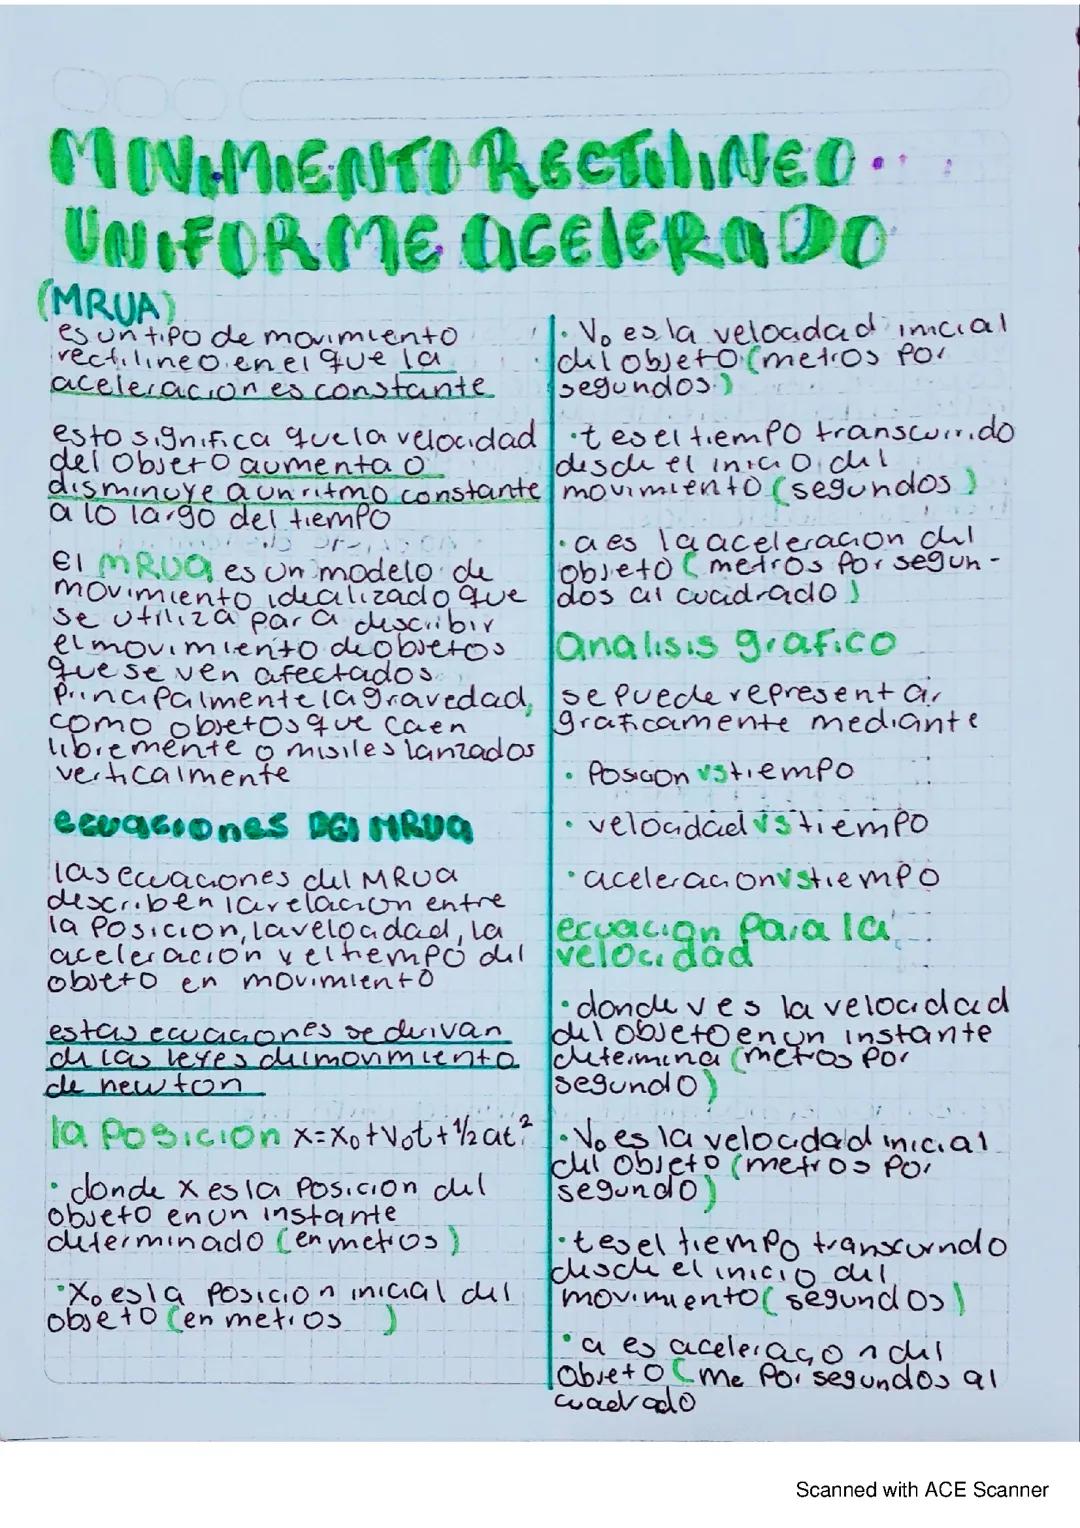 MOVIMIENTO RECTILINEO
UNIFORME ACELERADO
(MRUA)
es un tipo de movimiento
rectilineo en el que la
aceleracion es constante
esto significa que la velocidad
del objeto aumenta o
disminuye a un ritmo constante
a lo largo del tiempo
El MRUA es un modelo de
movimiento idealizado que
se utiliza para describir
el movimiento de objetos
que se ven afectados
principalmente la gravedad,
como objetos que caen
libremente o misiles lanzados
verticalmente
ecuaciones DEl MRUA
las ecuaciones del MRUA
describen la relacion entre
la posicion, la velocidad, la
aceleracion y el tiempo del
objeto en movimiento
estas ecuaciones se derivan
de las leyes del movimiento
de newton
la posicion x=x₀+v₀t+½at²
• donde x es la posicion del
objeto en un instante
determinado (en metros)
• X₀ es la posicion inicial del
objeto (en metros )
• V₀ es la velocidad inicial
del objeto (metros por
segundos)
• t es el tiempo transcurrido
desde el inicio del
movimiento (segundos)
• a es la aceleracion del
objeto (metros por segun-
dos al cuadrado)
analisis grafico
se puede representar
graficamente mediante
• Posicion vs tiempo
• velocidad vs tiempo
• aceleracion vs tiempo
ecuacion para la
velocidad
• donde v es la velocidad
del objeto en un instante
determina (metros por
segundo)
• V₀ es la velocidad inicial
del objeto (metros por
segundo)
• t es el tiempo transcurrido
desde el inicio del
movimiento (segundos)
• a es aceleracion del
objeto (me por segundos al
cuadrado
Scanned with ACE Scanner